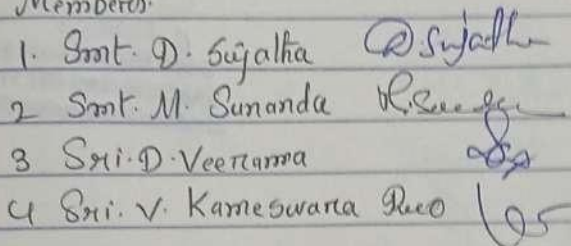 Members:
1. Smt. D. Sujatha D. Sujath
2 Smt. M. Sunanda
3 Sri. D. Veeranna
4 Sri. V. Kameswara Rao